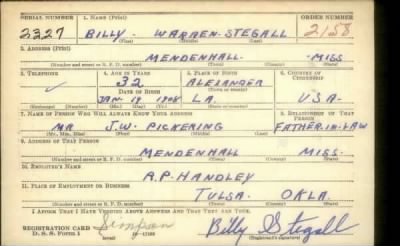 SERIAL NUMBER 1. NAME (Print) ORDER NUMBER
2327 BILLY - WARREN - STEGALL 2158
(First) (Middle) (Last)
2. ADDRESS (Print)
MENDENHALL MISS
(Number and street or R. F. D. number) (Town) (County) (State)
3. TELEPHONE 4. AGE IN YEARS 5. PLACE OF BIRTH 6. COUNTRY OF CITIZENSHIP
✓ 32 ALEXANDER
DATE OF BIRTH (Town or county)
JAN. 19 1908 LA. USA.
(Exchange) (Number) (Mo.) (Day) (Yr.) (State or country)
7. NAME OF PERSON WHO WILL ALWAYS KNOW YOUR ADDRESS 8. RELATIONSHIP OF THAT PERSON
MR J.W. PICKERING FATHER-IN-LAW
(Mr., Mrs., Miss) (First) (Middle) (Last)
9. ADDRESS OF THAT PERSON
MENDENHALL MISS.
(Number and street or R. F. D. number) (Town) (County) (State)
10. EMPLOYER'S NAME
A.P. HANDLEY
11. PLACE OF EMPLOYMENT OR BUSINESS
TULSA. OKLA.
(Number and street or R. F. D. number) (Town) (County) (State)
I AFFIRM THAT I HAVE VERIFIED ABOVE ANSWERS AND THAT THEY ARE TRUE.
REGISTRATION CARD Simpson Billy Stegall
D. S. S. FORM 1 (over) (Registrant's signature)